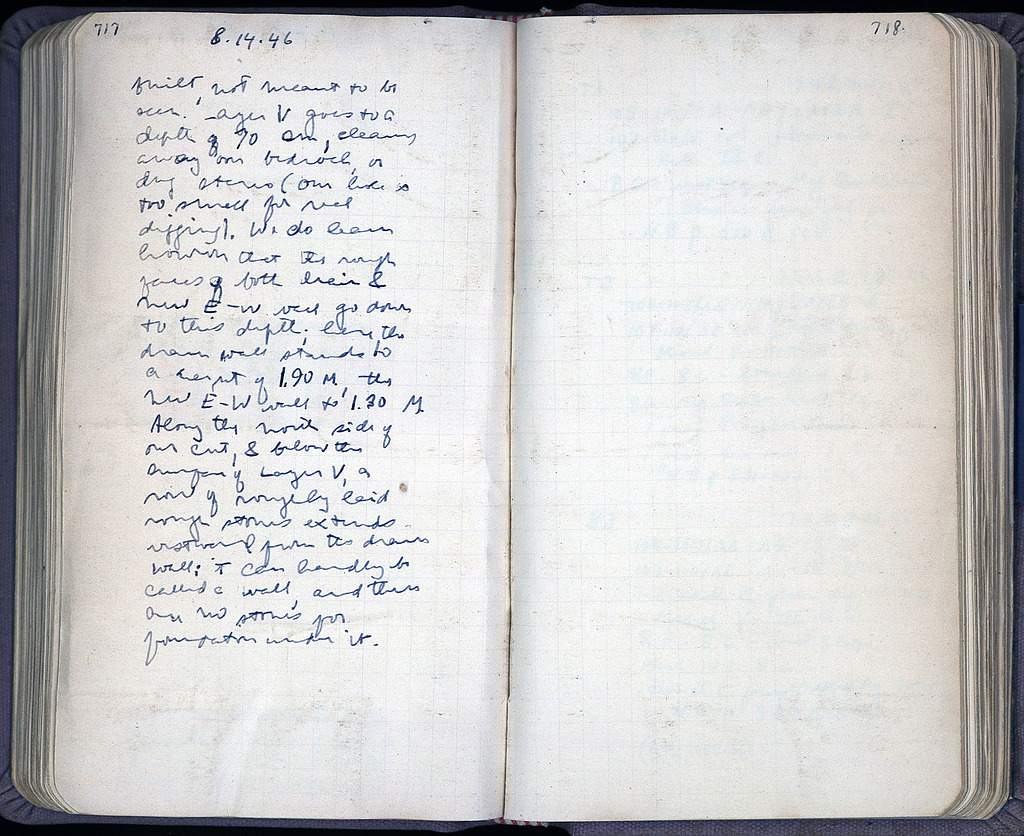 717
8.14.46
built, not meant to be
seen. Layer V goes to a
depth of 70 cm, cleaning
away our bedrock, or
dug stereo (our hole is
too small for real
digging). We do learn
however that the rough
faces of both drain &
new E-W wall go down
to this depth; here the
drain wall stands to
a height of 1.90 M, the
new E-W wall to 1.30 M.
Along the north side of
our cut, & below the
surface of Layer V, a
row of roughly laid
rough stones extends
westward from the drain
wall; it can hardly be
called a wall, and there
are no stones for
foundation under it.
718.